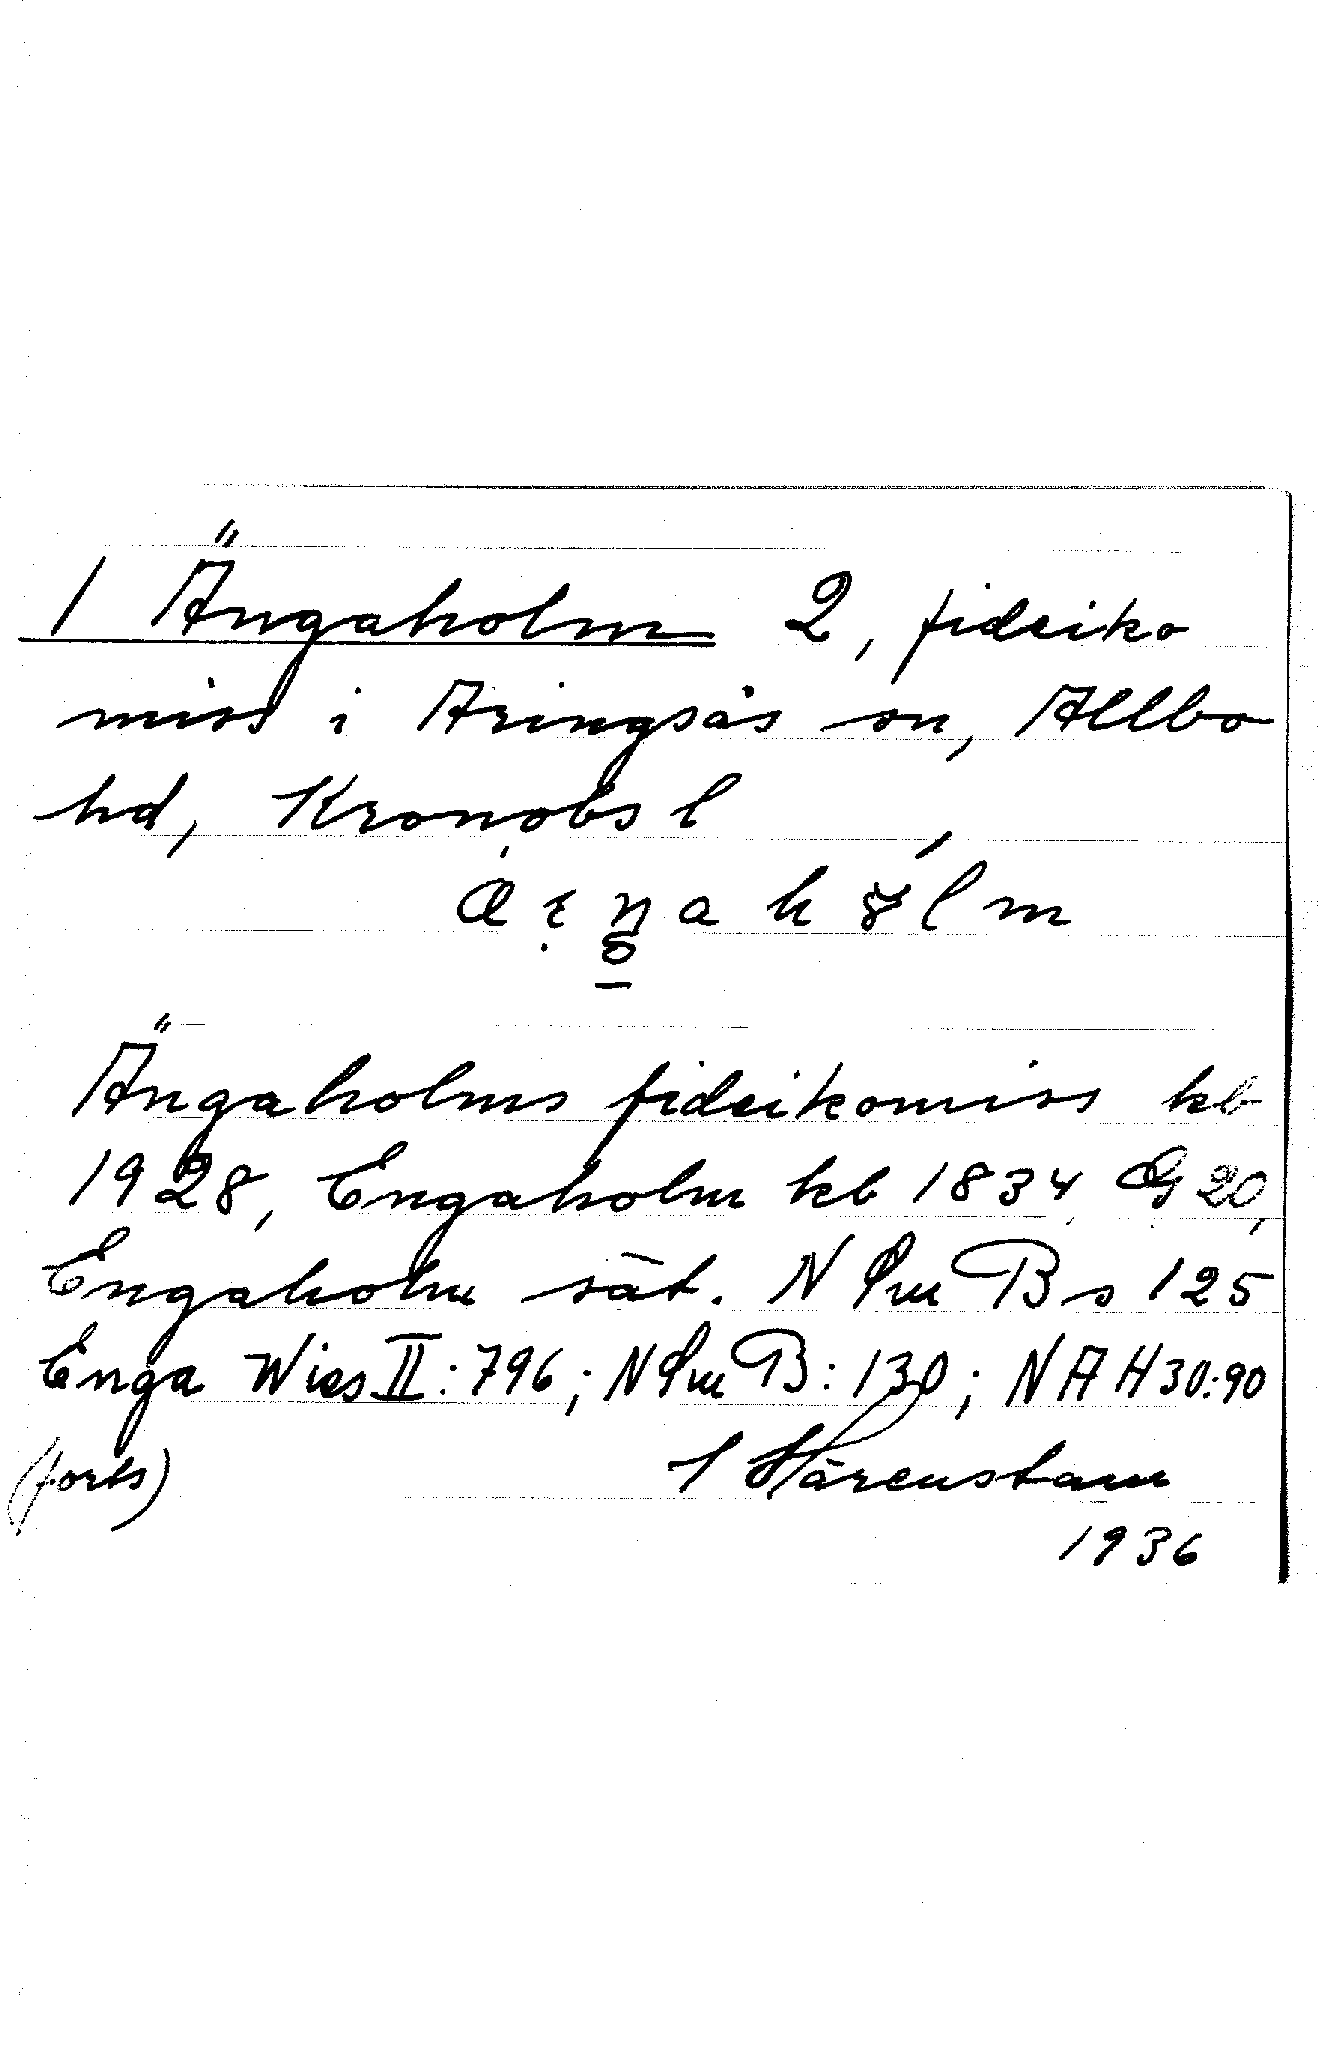 1 Ängaholm 2, fideiko
miss i Aringsås sn, Allbo
hd, Kronobs l
Ängaholms fideikomiss kb
1928, Engaholm kb 1834 G 20,
Engaholm sät. N Sm B s 125
Enga Wies II:796; N Sm B:130; NAH 30:90
(forts) I Härenstam
1936